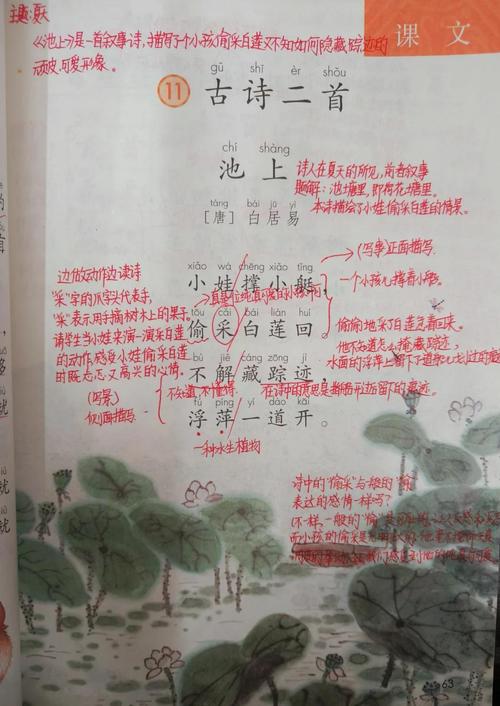 主题:夏天
《池上》是一首叙事诗,描写了一个小孩偷采白莲又不知如何隐藏踪迹的
顽皮、可爱形象。
课文
gǔ shī èr shǒu
11 古诗二首
chí shàng
池上
诗人在夏天的所见,前者叙事
题解:池塘里,即荷花塘里。
本诗描绘了小娃偷采白莲的情景。
táng bái jū yì
[唐]白居易
(写事)正面描写
xiǎo wá chēng xiǎo tǐng
小娃撑小艇,
一个小孩儿撑着小艇,
边做动作边读诗
"采"字的爪字头代表手,
"采"表示用手摘树木上的果子。
请学生当小娃来演一演采白莲
的动作,感受小娃偷采白莲
时既忐忑又高兴的心情。
tōu cǎi bái lián huí
偷采白莲回。
偷偷地采了白莲
他不知道怎么掩藏踪迹,
水面的浮萍上留下了
bù jiě cáng zōng jì
不解藏踪迹,
不知道,不懂得。
(写景)
侧面描写
fú píng yí dào kāi
浮萍一道开。
一种水生植物
诗中的"偷采"与一般的"偷"
表达的感情一样吗?
(不一样,一般的"偷"
而小孩的偷采是
63